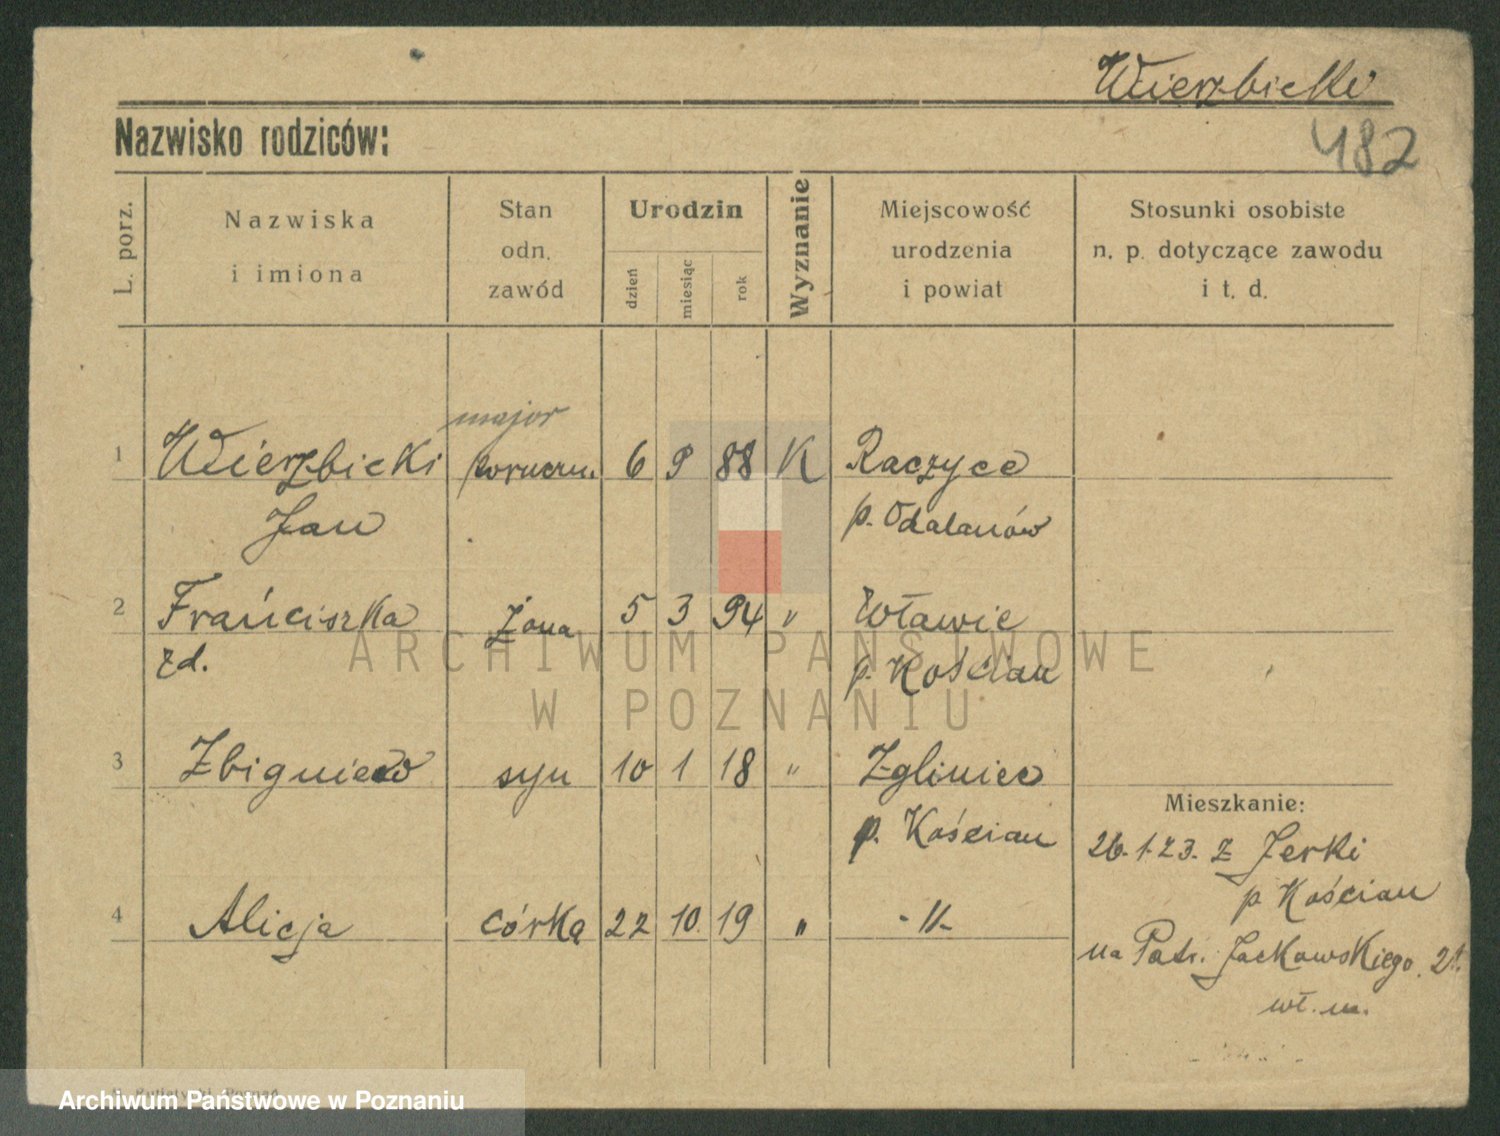 Wierzbicki
Nazwisko rodziców:
482
L. porz.
Nazwiska
i imiona
Stan
odn.
zawód
Urodzin
dzień
miesiąc
rok
Wyznanie
Miejscowość
urodzenia
i powiat
Stosunki osobiste
n. p. dotyczące zawodu
i t. d.
major
1 Wierzbicki 6 9 88 K Raczyce
Jan p. Odalanów
2 Franciszka żona 5 3 94 " Wławie
zd. p. Kościan
3 Zbigniew syn 10 1 18 " Zgliniec
p. Kościan
4 Alicja córka 22 10 19 " -"-
Mieszkanie:
26.1.23. z Jerki
p Kościan
na Patr. Jackowskiego
wł. m.
ARCHIWUM PAŃSTWOWE
W POZNANIU
Archiwum Państwowe w Poznaniu